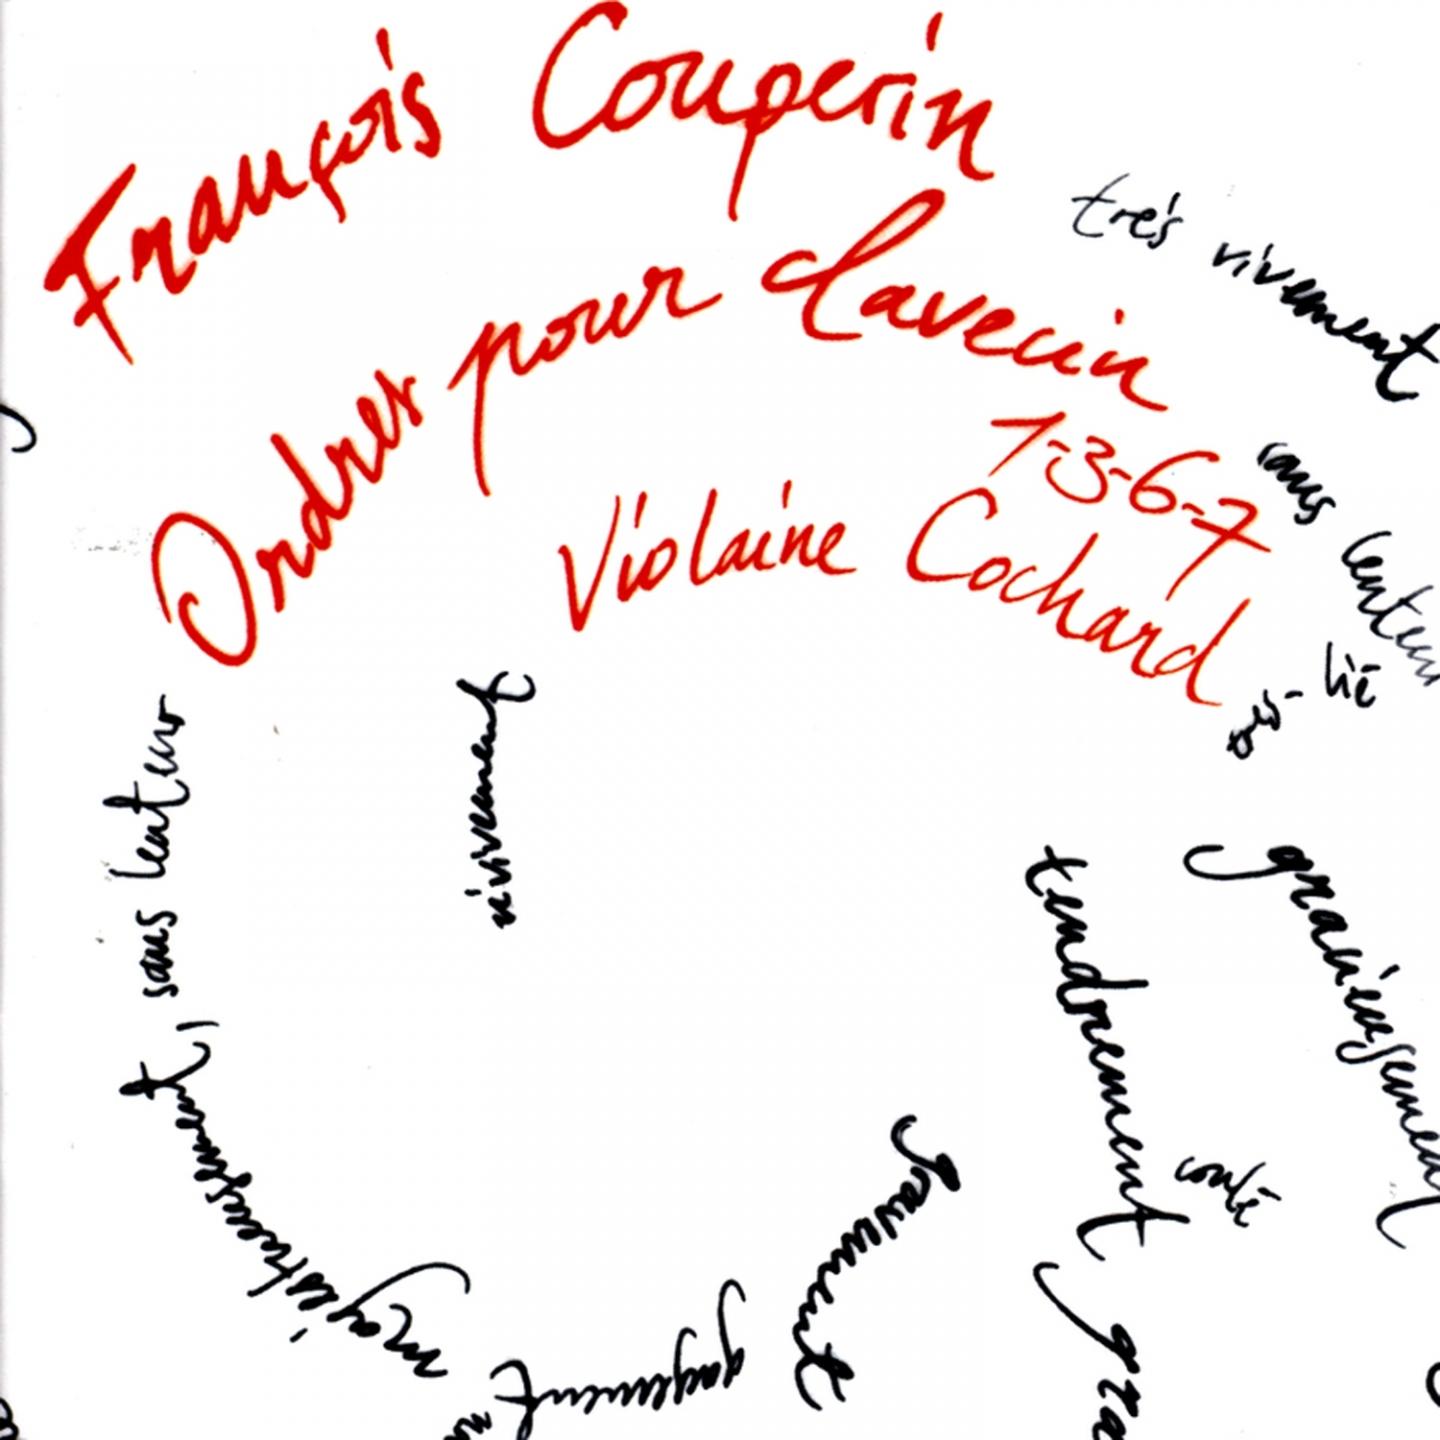 François Couperin
Ordres pour clavecin
1-3-6-7
Violaine Cochard
très vivement
sans lenteur
lié
gracieusement
tendrement
coulé
gravement
gayement
majestueusement, sans lenteur
vivement